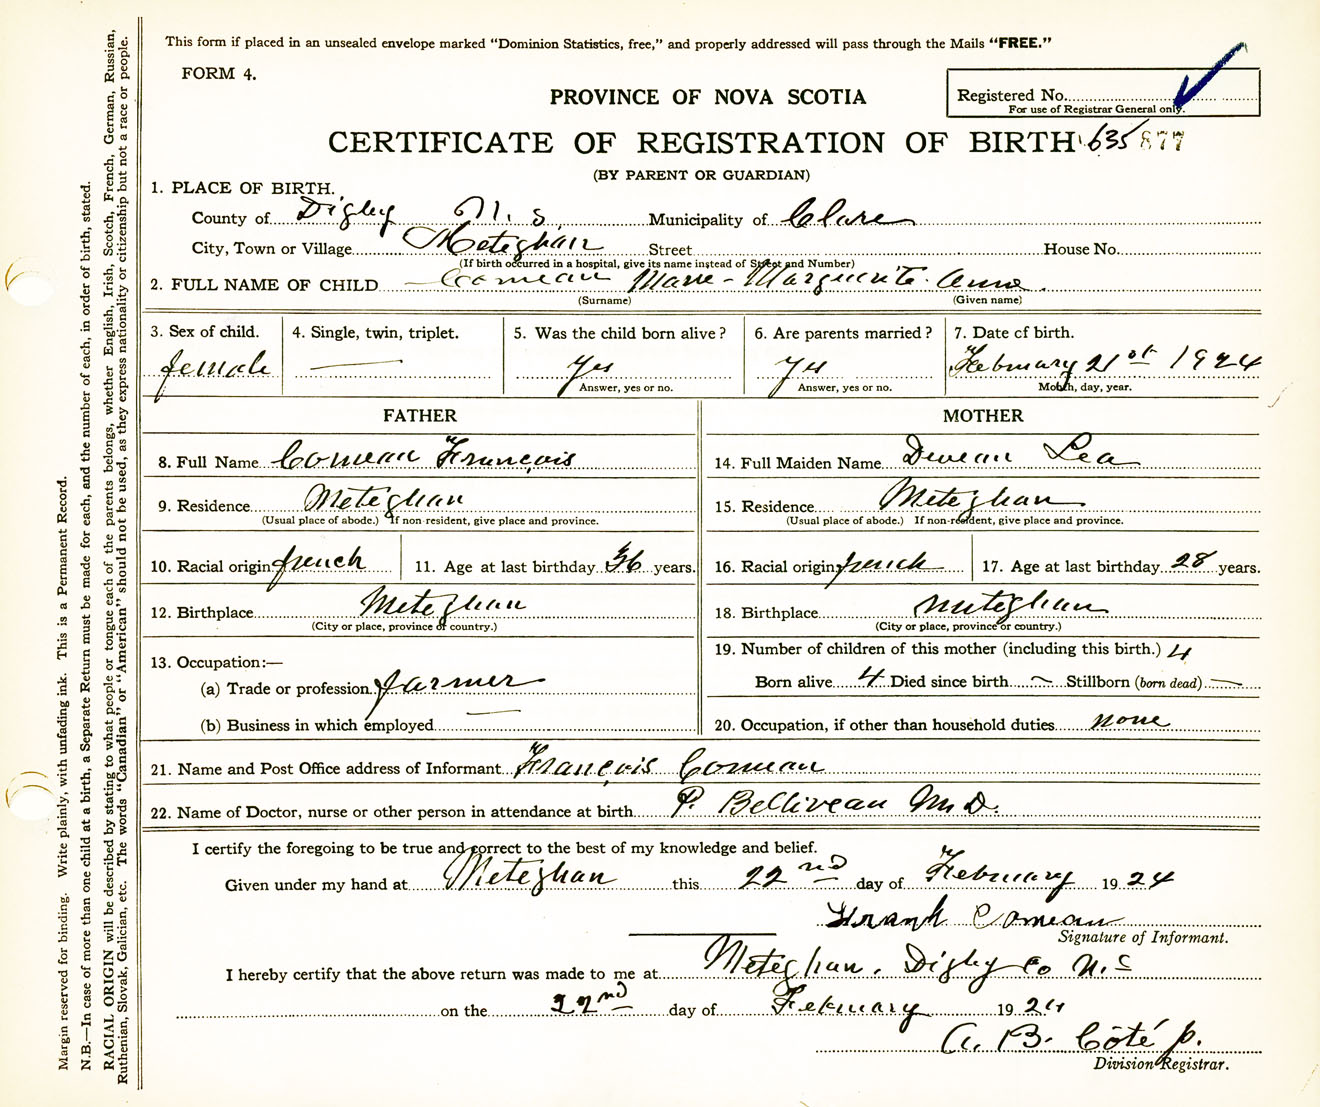 This form if placed in an unsealed envelope marked "Dominion Statistics, free," and properly addressed will pass through the Mails "FREE."
FORM 4.
Registered No.
For use of Registrar General only.
PROVINCE OF NOVA SCOTIA
CERTIFICATE OF REGISTRATION OF BIRTH 635 877
(BY PARENT OR GUARDIAN)
1. PLACE OF BIRTH.
County of Digby N. S. Municipality of Clare
City, Town or Village Meteghan Street House No.
(If birth occurred in a hospital, give its name instead of Street and Number)
2. FULL NAME OF CHILD Comeau Marie - Marguerite Anne.
(Surname) (Given name)
3. Sex of child. 4. Single, twin, triplet. 5. Was the child born alive? 6. Are parents married? 7. Date of birth.
female — Yes Yes February 21st 1924
Answer, yes or no. Answer, yes or no. Month, day, year.
FATHER MOTHER
8. Full Name Comeau François 14. Full Maiden Name Deveau Lea
9. Residence Meteghan 15. Residence Meteghan
(Usual place of abode.) If non-resident, give place and province. (Usual place of abode.) If non-resident, give place and province.
10. Racial origin french 11. Age at last birthday 36 years. 16. Racial origin french 17. Age at last birthday 28 years.
12. Birthplace Meteghan 18. Birthplace Meteghan
(City or place, province or country.) (City or place, province or country.)
13. Occupation:— 19. Number of children of this mother (including this birth.) 4
(a) Trade or profession farmer Born alive 4 Died since birth ~ Stillborn (born dead) —
(b) Business in which employed — 20. Occupation, if other than household duties none
21. Name and Post Office address of Informant François Comeau
22. Name of Doctor, nurse or other person in attendance at birth P. Belliveau M.D.
I certify the foregoing to be true and correct to the best of my knowledge and belief.
Given under my hand at Meteghan this 22nd day of February 1924
Frank Comeau
Signature of Informant.
I hereby certify that the above return was made to me at Meteghan, Digby Co N.S
on the 22nd day of February 1924
A. B. Côté p.
Division Registrar.
Margin reserved for binding. Write plainly, with unfading ink. This is a Permanent Record.
N.B.—In case of more than one child at a birth, a Separate Return must be made for each, and the number of each, in order of birth, stated.
RACIAL ORIGIN will be described by stating to what people or tongue each of the parents belongs, whether English, Irish, Scotch, French, German, Russian,
Ruthenian, Slovak, Galician, etc. The words "Canadian" or "American" should not be used, as they express nationality or citizenship but not a race or people.